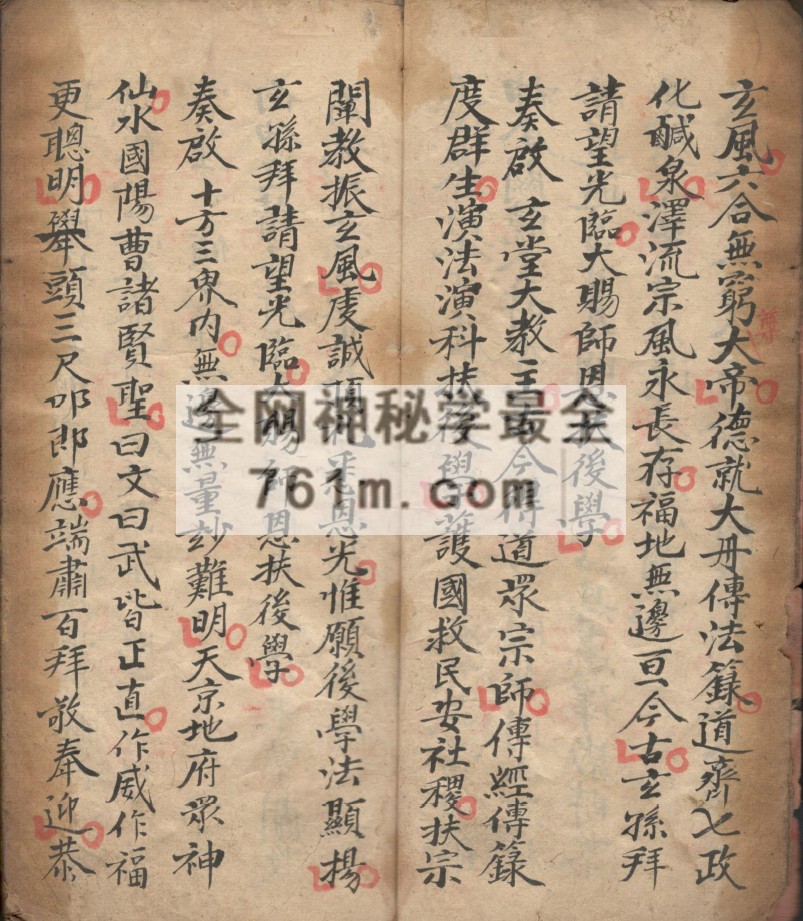 玄風六合無窮大帝德就大丹傳法籙道齊七政
化鹹泉澤流宗風永長存福地無邊亘今古玄孫拜
請望光臨大賜師恩扶後學
奏啟玄堂大教主古今得道眾宗師傳經傳籙
度群生演法演科扶後學護國救民安社稷扶宗
闡教振玄風虔誠頂礼悉恩光惟願後學法顯揚
玄孫拜請望光臨大賜師恩扶後學
奏啟十方三界內無邊無量玅難明天京地府眾神
仙水國陽曹諸賢聖曰文曰武皆正直作威作福
更聰明舉頭三尺叩即應端肅百拜敬奉迎恭
全网神秘学最全
761m.com